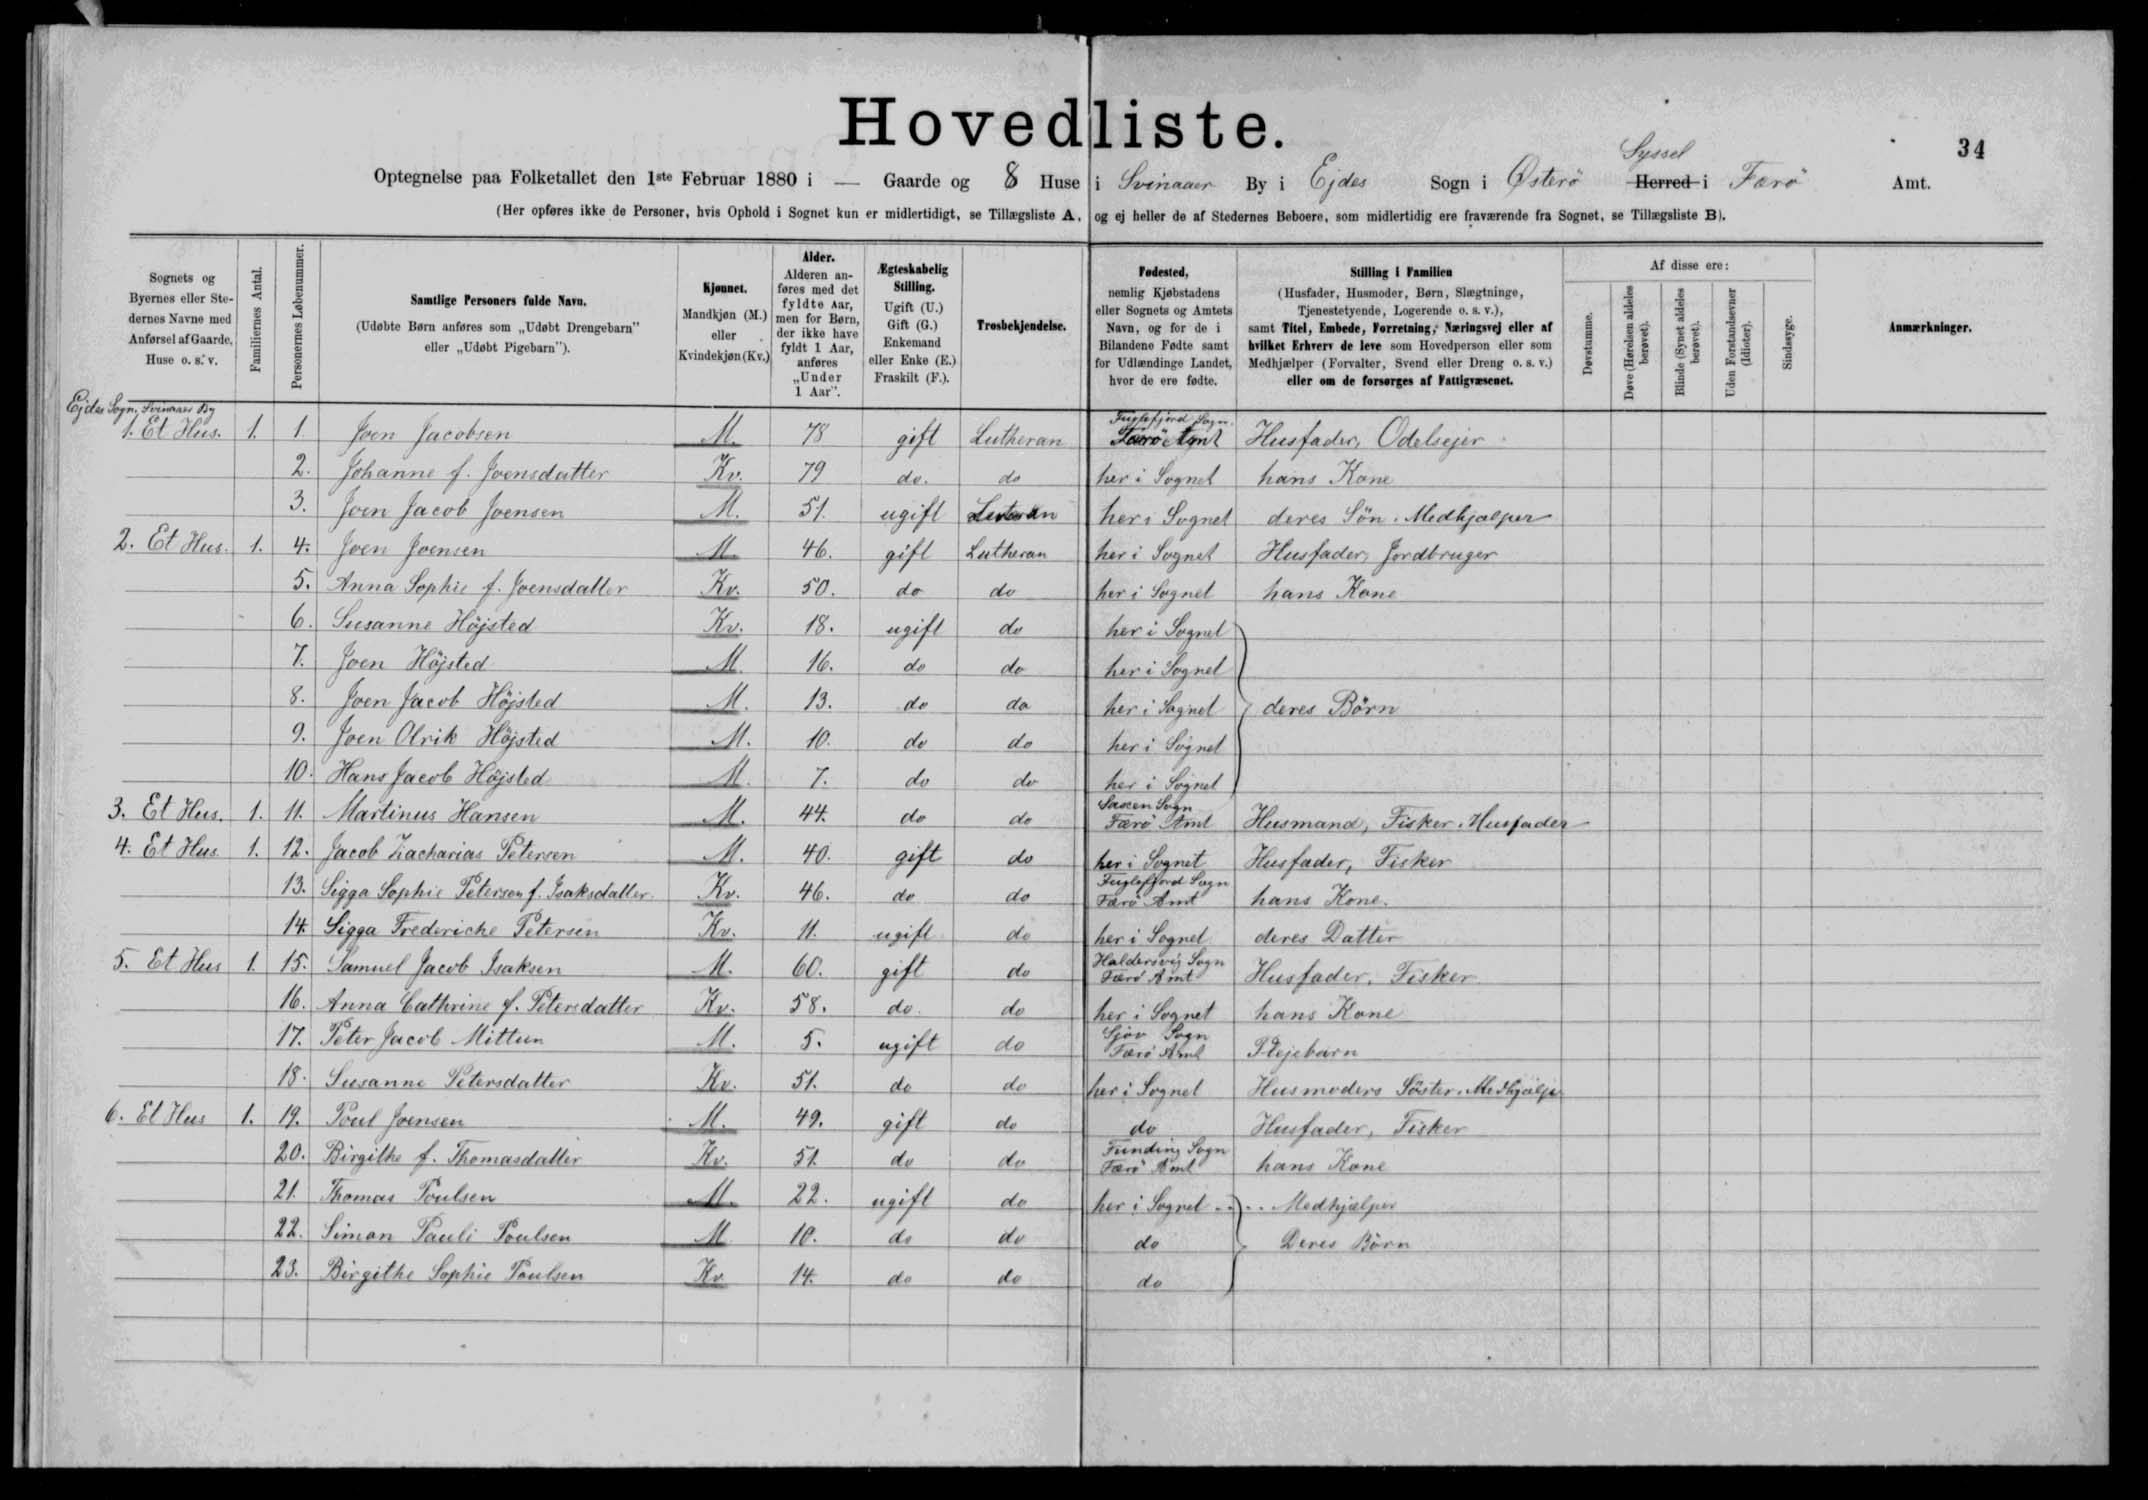 Hovedliste.
34
Syssel
Optegnelse paa Folketallet den 1ste Februar 1880 i — Gaarde og 8 Huse i Svinaaer By i Ejdes Sogn i Österö Herred i Færö Amt.
(Her opføres ikke de Personer, hvis Ophold i Sognet kun er midlertidigt, se Tillægsliste A, og ej heller de af Stedernes Beboere, som midlertidig ere fraværende fra Sognet, se Tillægsliste B).
Sognets og Byernes eller Stedernes Navne med Anførsel af Gaarde, Huse o. s. v.
Familiernes Antal.
Personernes Løbenummer.
Samtlige Personers fulde Navn.
(Udøbte Børn anføres som „Udøbt Drengebarn" eller „Udøbt Pigebarn").
Kjønnet.
Mandkjøn (M.) eller Kvindekjøn (Kv.)
Alder.
Alderen anføres med det fyldte Aar, men for Børn, der ikke have fyldt 1 Aar, anføres „Under 1 Aar".
Ægteskabelig Stilling.
Ugift (U.) Gift (G.) Enkemand eller Enke (E.) Fraskilt (F.).
Trosbekjendelse.
Fødested,
nemlig Kjøbstadens eller Sognets og Amtets Navn, og for de i Bilandene Fødte samt for Udlændinge Landet, hvor de ere fødte.
Stilling i Familien
(Husfader, Husmoder, Børn, Slægtninge, Tjenestetyende, Logerende o. s. v.), samt Titel, Embede, Forretning, Næringsvej eller af hvilket Erhverv de leve som Hovedperson eller som Medhjælper (Forvalter, Svend eller Dreng o. s. v.) eller om de forsørges af Fattigvæsenet.
Af disse ere:
Døvstumme.
Døve (Hørelsen aldeles berøvet).
Blinde (Synet aldeles berøvet).
Uden Forstandsevner (Idioter).
Sindssyge.
Anmærkninger.
Ejdes Sogn, Svinaaer By
1. Et Hus. 1. 1. Joen Jacobsen M. 78 gift Lutheran Fuglefjord Sogn. Færö Amt Husfader, Odelsejer
2. Johanne f. Joensdatter Kv. 79 do. do her i Sognet hans Kone
3. Joen Jacob Joensen M. 51. ugift her i Sognet deres Sön. Medhjælper
2. Et Hus. 1. 4. Joen Joensen M. 46. gift Lutheran her i Sognet Husfader, Jordbruger
5. Anna Sophie f. Joensdatter Kv. 50. do do her i Sognet hans Kone
6. Susanne Höjsted Kv. 18. ugift do her i Sognet
7. Joen Höjsted M. 16. do do her i Sognet
8. Joen Jacob Höjsted M. 13. do do her i Sognet deres Börn
9. Joen Olrik Höjsted M. 10. do do her i Sognet
10. Hans Jacob Höjsted M. 7. do do her i Sognet
3. Et Hus. 1. 11. Martinus Hansen M. 44. do do Saxen Sogn Færö Amt Husmand, Fisker. Husfader
4. Et Hus 1. 12. Jacob Zacharias Petersen M. 40. gift do her i Sognet Husfader, Fisker
13. Sigga Sophie Petersen f. Isaksdatter. Kv. 46. do do Fuglefjord Sogn Færö Amt hans Kone.
14. Sigga Frederiche Petersen Kv. 11. ugift do her i Sognet deres Datter
5. Et Hus 1. 15. Samuel Jacob Isaksen M. 60. gift do Haldersvig Sogn Færö Amt Husfader, Fisker
16. Anna Cathrine f. Petersdatter Kv. 58. do. do her i Sognet hans Kone
17. Peter Jacob Mittun M. 5. ugift do Sjöv Sogn Færö Amt Plejebarn
18. Susanne Petersdatter Kv. 51. do do her i Sognet Husmoders Söster. Medhjælper
6. Et Hus 1. 19. Poul Joensen M. 49. gift do do Husfader, Fisker
20. Birgithe f. Thomasdatter Kv. 51. do do Funding Sogn Færö Amt hans Kone
21. Thomas Poulsen M. 22. ugift do her i Sognet Medhjælper
22. Simon Pauli Poulsen M 10. do do do Deres Börn
23. Birgithe Sophie Poulsen Kv. 14. do do do